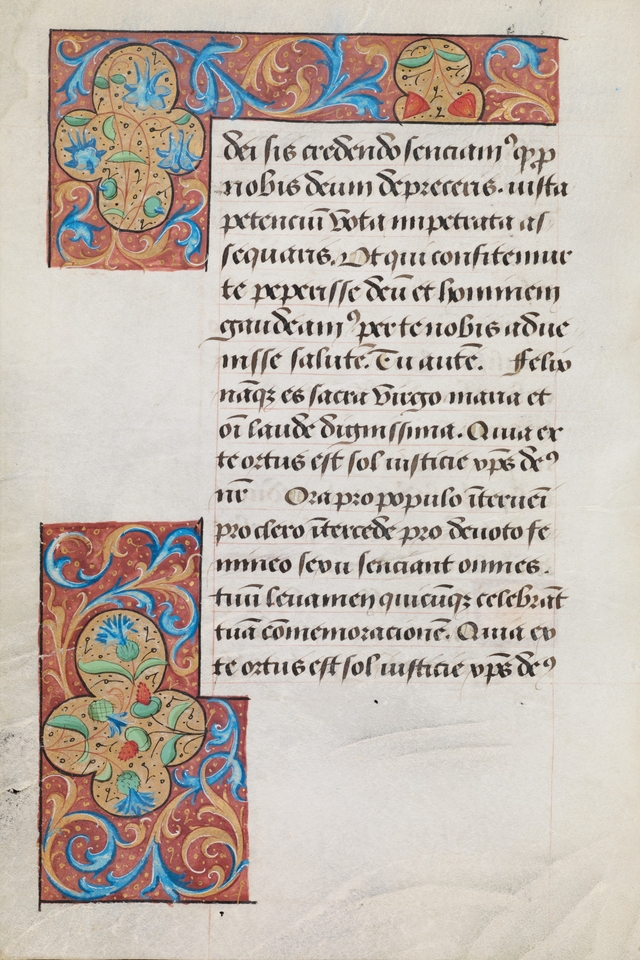 dei sis credendo senciam⁹ q̄ p̄
nobis deum depreceris. iusta
petenciū vota impetrata as
sequaris. Et qui confitemur
te peperisse deū et hominem
gaudeam⁹ per te nobis adue
nisse salutē. Tu autē. Felix
nāqꝫ es sacra virgo maria et
oī laude dignissima. Quia ex
te ortus est sol iusticie xp̄s de⁹
nr̄ Ora pro populo īterueni
pro clero ītercede pro deuoto fe
mineo sexu senciant omnes.
tuū leuamen quicūqꝫ celebrāt
tuā cōmemoracionē. Quia ex
te ortus est sol iusticie xp̄s de⁹